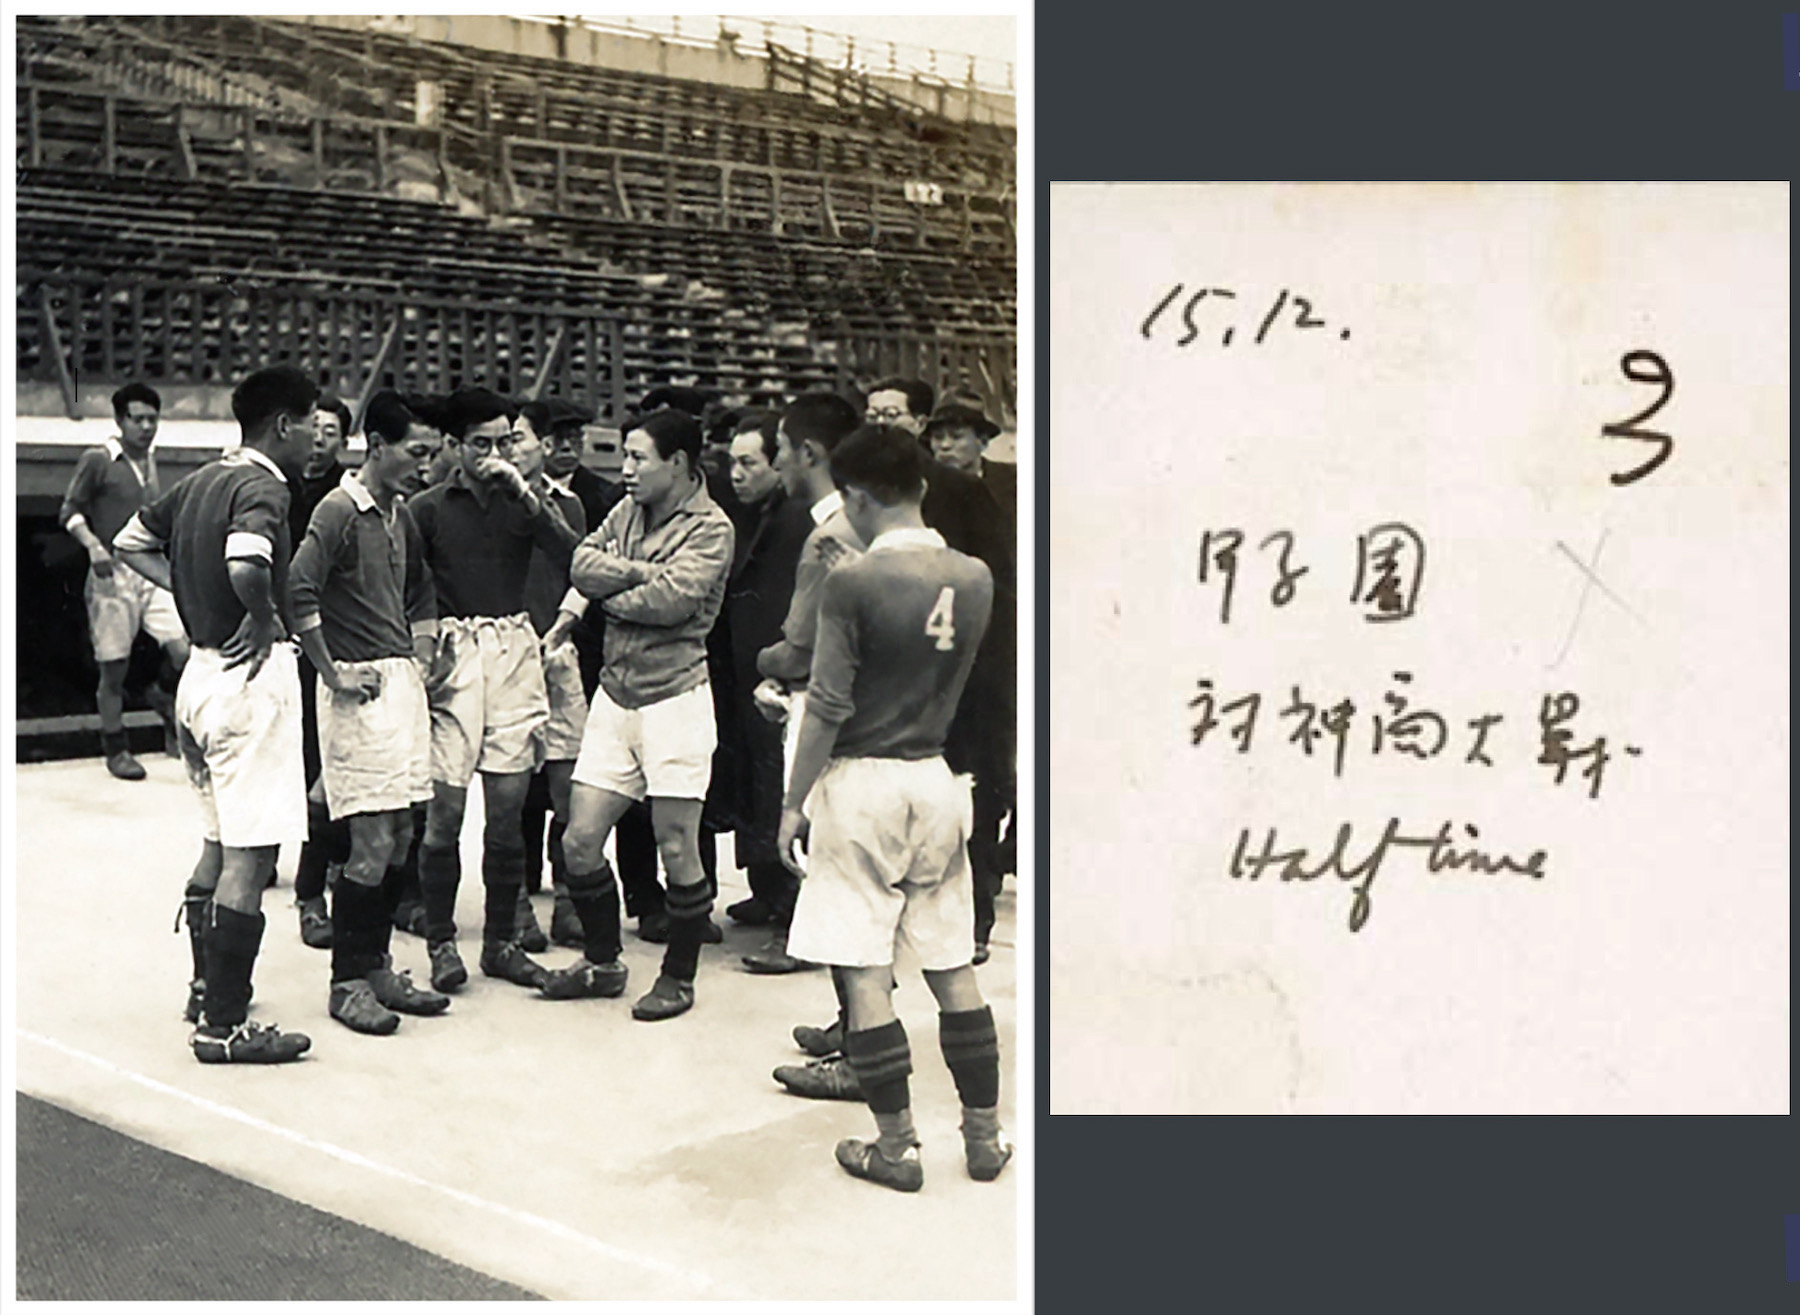 4
15.12.
3
甲子園
対神商大戰
Half time